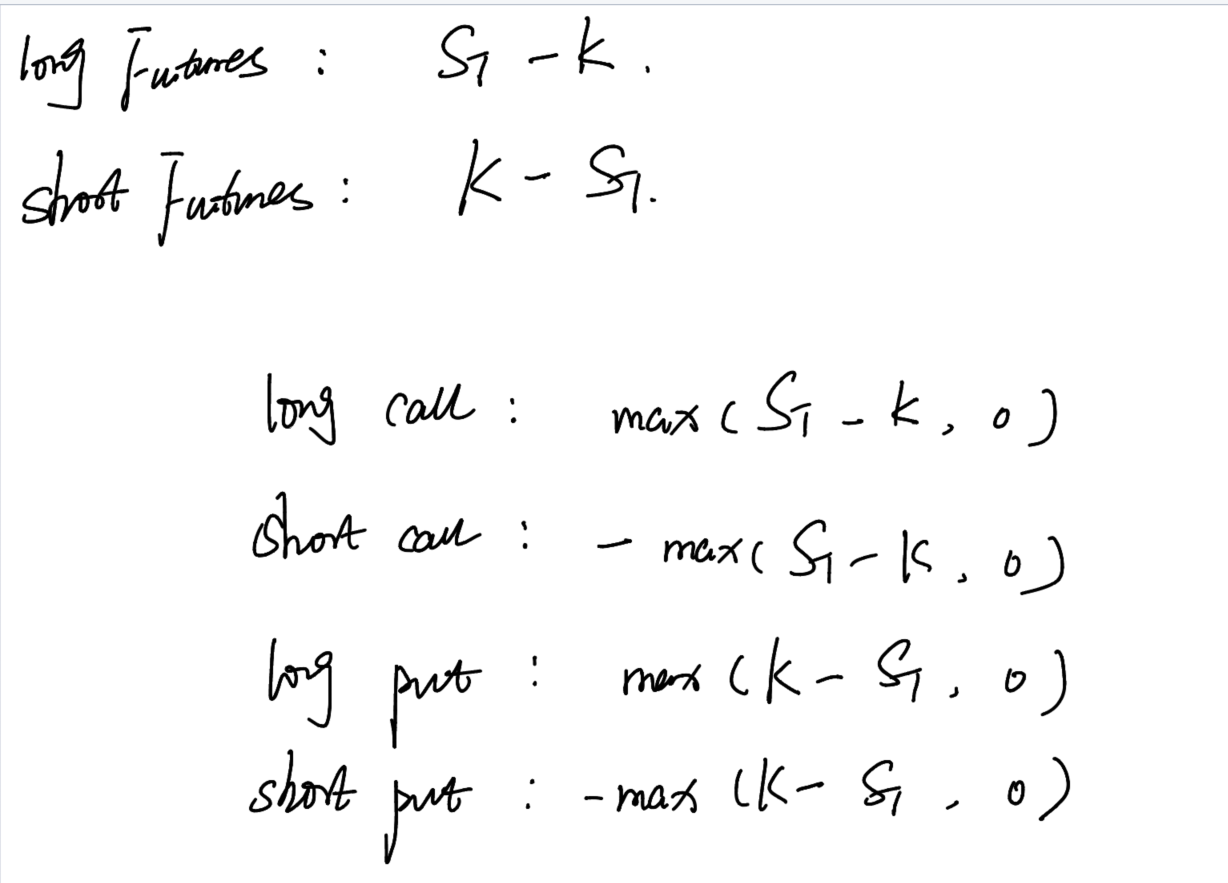 long Futures : S_T - K.
short Futures : K - S_T.
long call : max ( S_T - K, 0 )
short call : - max ( S_T - K, 0 )
long put : max ( K - S_T, 0 )
short put : - max ( K - S_T, 0 )